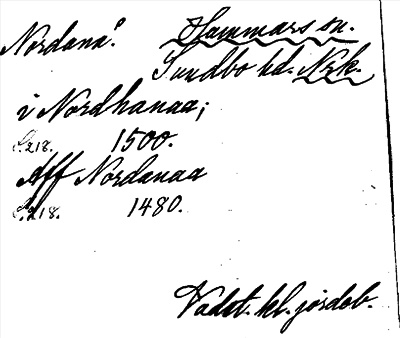 Nordanå. Hammars sn.
Sundbo hd. Nrk.
i Nordhanaa;
S.218. 1500.
Aff Nordanaa
S.218. 1480.
Vadst. kl. jordeb.